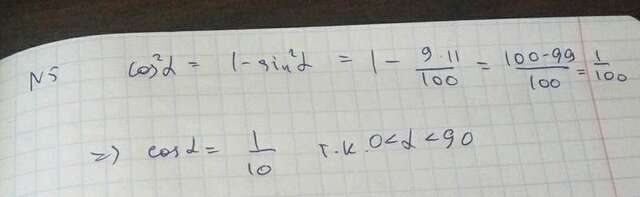 N5 cos²α = 1-sin²α = 1 - 9·11/100 = 100-99/100 = 1/100
=> cosα = 1/10 т.к. 0<α<90